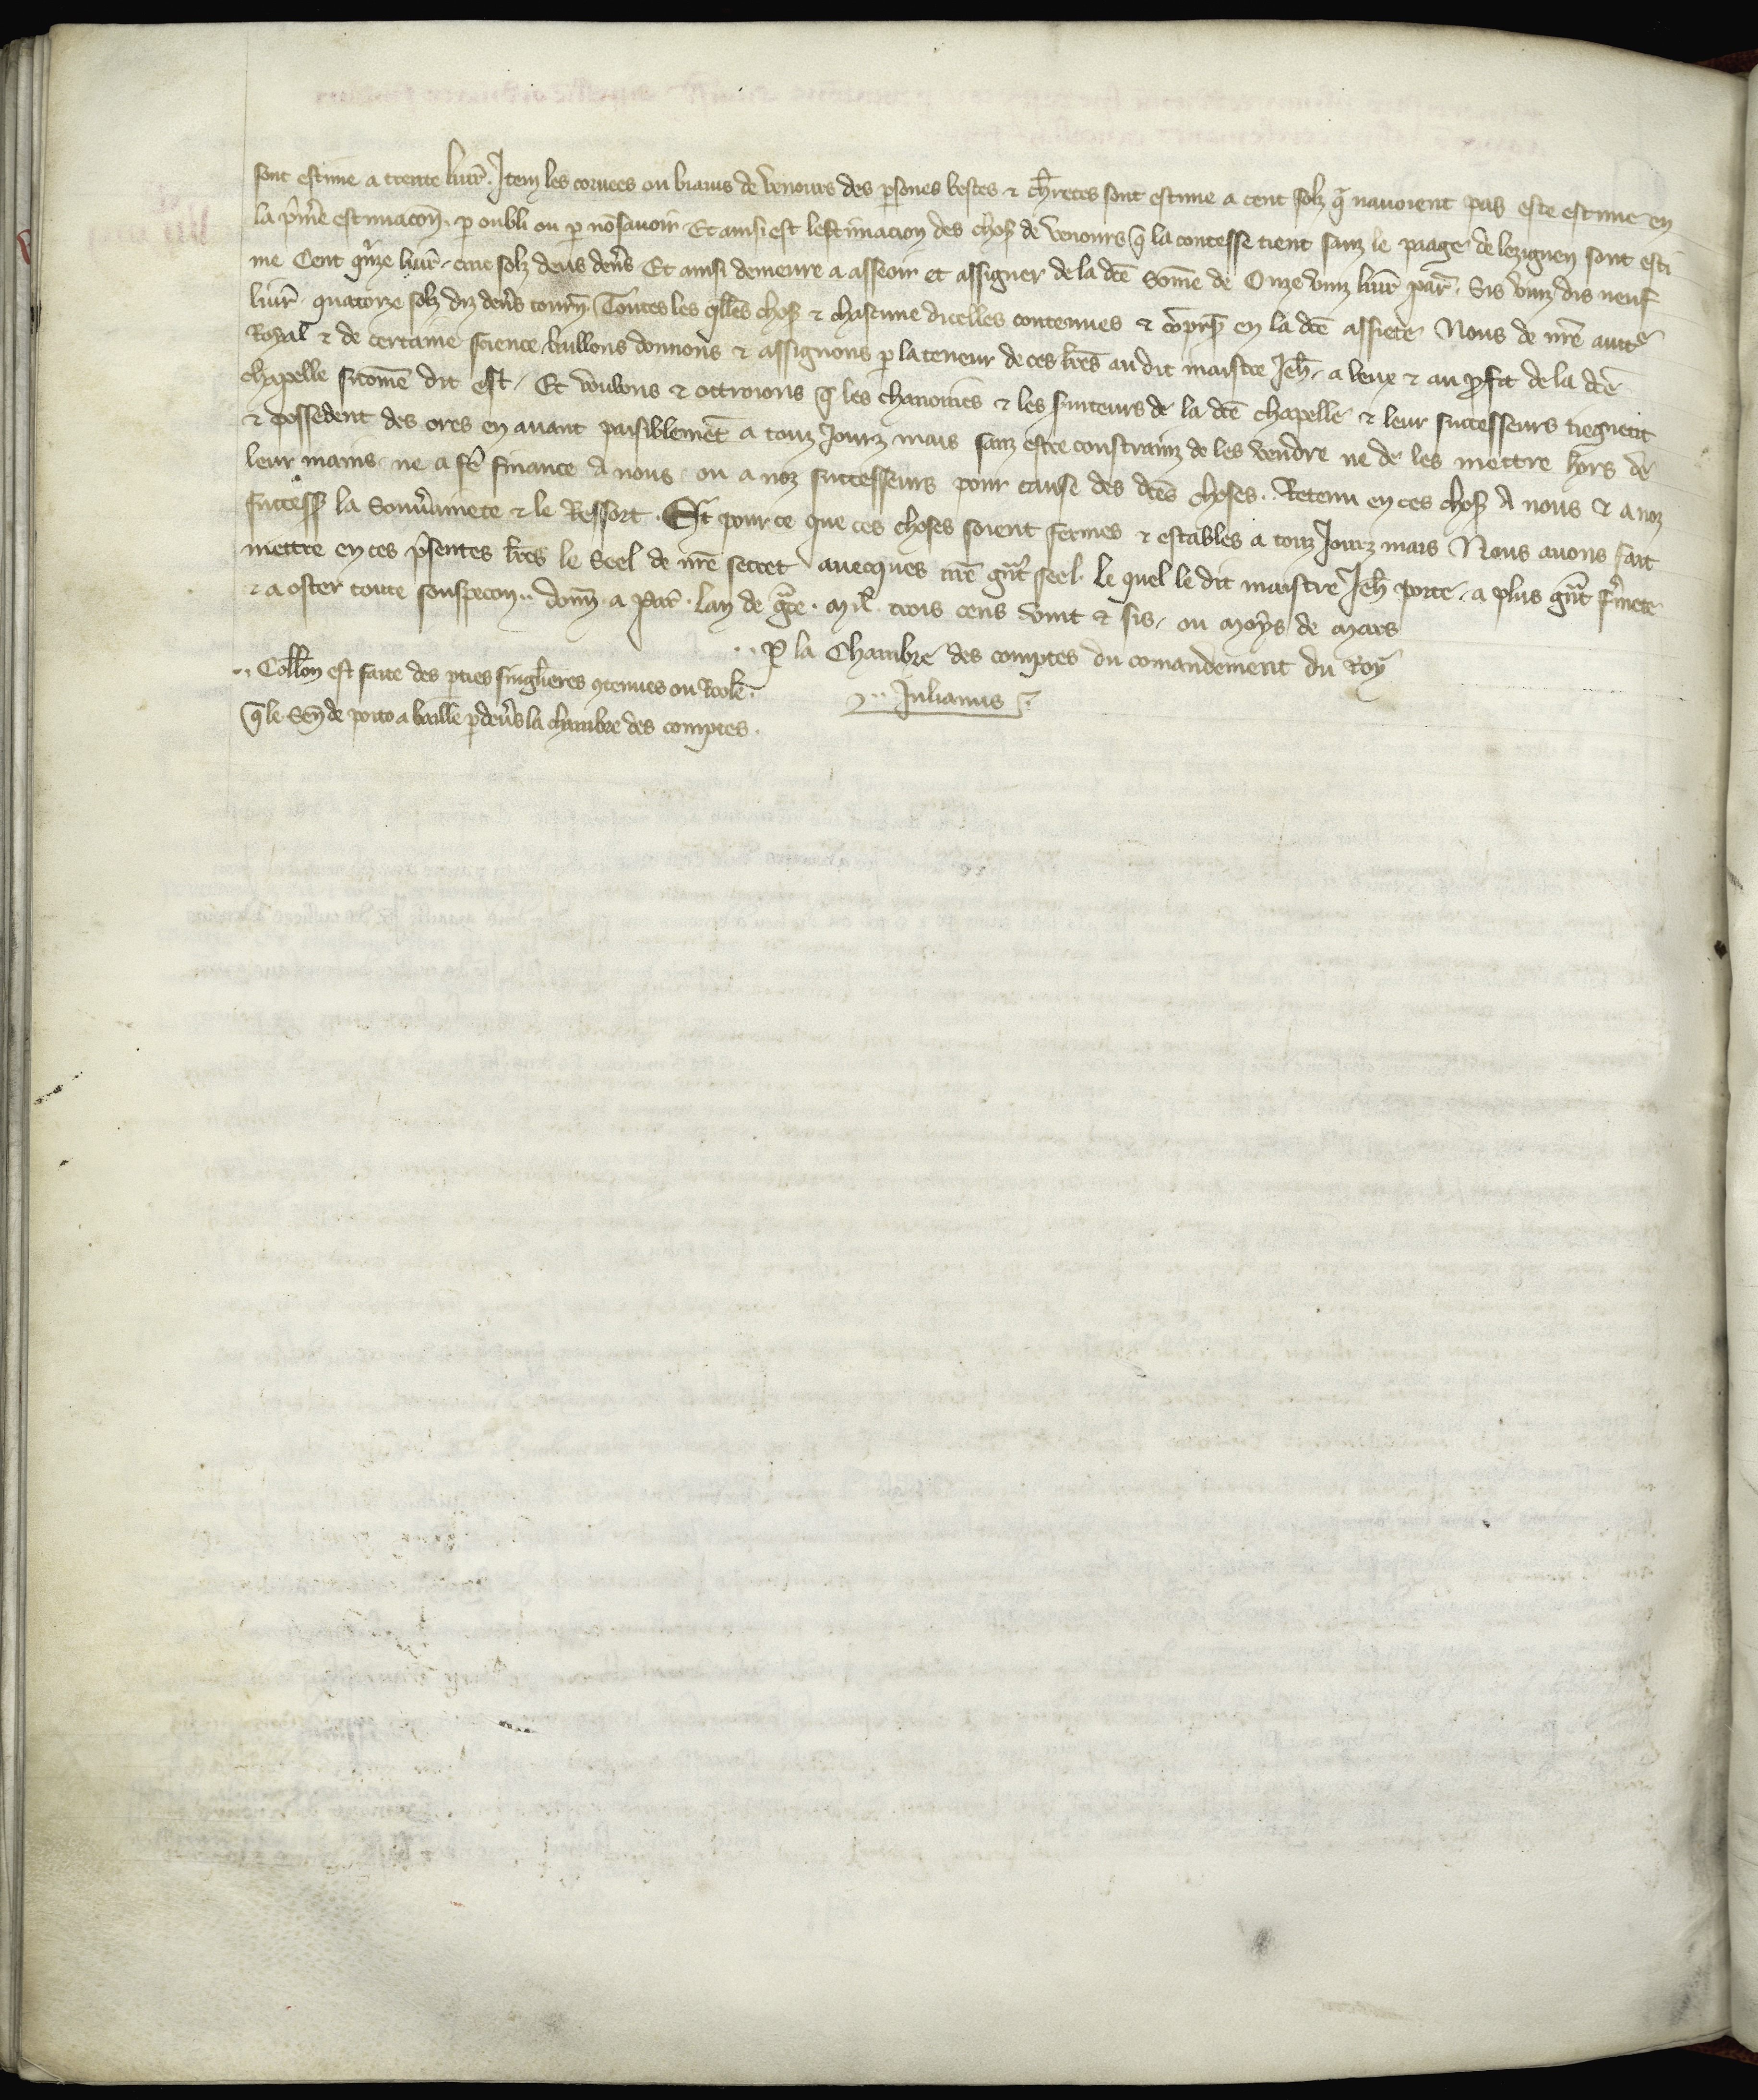 sont estime a trente livr̃. Item les corvees ou biains de Venours des p̱sones bestes & ch̃retes sont estime a cent solz q̃ navoient pas este estime en
la p̃miẽ estimacoñ. p̱ oubli ou p̱ nõ savoir. Et ainsi est lestimacion des choses de Venours q̃ la contesse tient sanz le paage de lezignen sont esti
me Cent q̃nze livr̃. cinc solz deus deñs Et ainsi demeure a asseoir et assigner de la dc̃e Som̃e de Onze vinz livr̃ par̃. Sis vinz dis neuf
livr̃. quatorze solz diz deñs tourñ. Toutes les q̃lles choses & chascune dicelles contenues & cõprises en la dc̃e assiete Nous de nr̃e auctẽ
Royal & de certaine science baillons donnons & assignons p̱ la teneur de ces lr̃es au dit maistre Jeh̃. a leux & au p̱fit de la dc̃e
chapelle sicom̃e dit est. Et voulons & ottroions q̃ les chanoines & les s̃viteurs de la dc̃e chapelle & leur successeurs tiegnent
& possedent des ores en avant paisiblemẽt a touz Jourz mais sanz estre constrainz de les vendre ne de les mettre hors de
leur mains. ne a fẽ finance a nous. ou a noz successeurs pour cause des dc̃es choses. Retenu en ces choses A nous & a noz
success̃ la Souv̾ainete & le Ressort. Et pour ce que ces choses soient fermes & estables a touz Jourz mais Nous avons fait
mettre en ces p̃sentes lr̃es le Seel de nr̃e secret avecques nr̃e gñt seel. le quel le dit maistre Jeh̃ porte. a plus gñt f̾mete
& a oster toute souspecoñ.. donñ. a Par̃. lan de gr̃ce. mil. trois cens vint & sis. ou moys de mars
.. P̱ la Chambre des comptes du comandement du Roy
.. Coll̃on est faite des p̱ties singl̃ieres ꝯtenues ou Rool̃e.
.. Julianus
q̃ le Señ de poito a baille p̱ dev̾s la chambre des comptes.